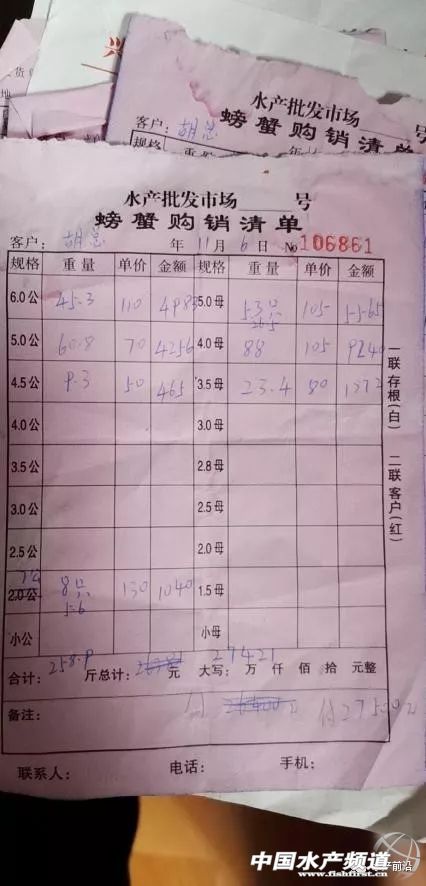 水产批发市场 号
客户: 胡总
螃蟹购销清单
规格 重量 年
水产批发市场 号
螃蟹购销清单
客户: 胡总 年 11 月 6 日 No 106861
规格 重量 单价 金额 规格 重量 单价 金额
6.0公 45.3 110 4983 5.0母 53只 105
5.0公 60.8 70 4256 4.0母 88 105 9240
4.5公 9.3 50 465 3.5母 23.4 80 1872
4.0公 3.0母
3.5公 2.8母
3.0公 2.5母
2.5公 2.0母
2.0公 8只 130 1040 1.5母
小公 小母
合计: 258.9 斤总计: 元 大写: 27421 万 仟 佰 拾 元整
备注: 付
联系人: 电话: 手机:
一联存根(白) 二联客户(红)
中国水产频道
www.fishfirst.cn
产前沿